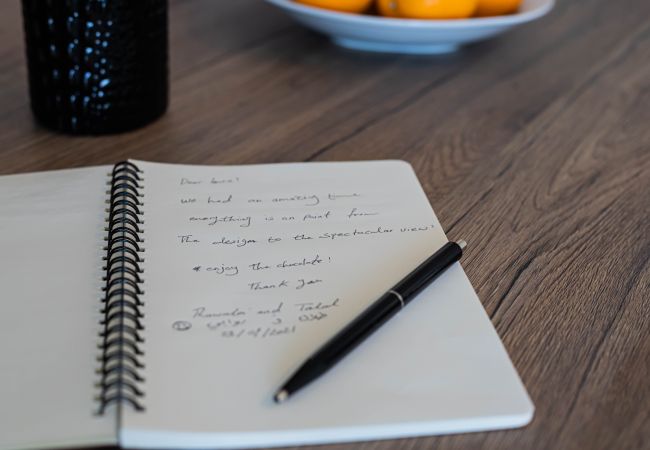 Dear
We had an amazing time
everything is on point from
The designs to the spectacular view!
* enjoy the chocolate!
Thank you
and Talal